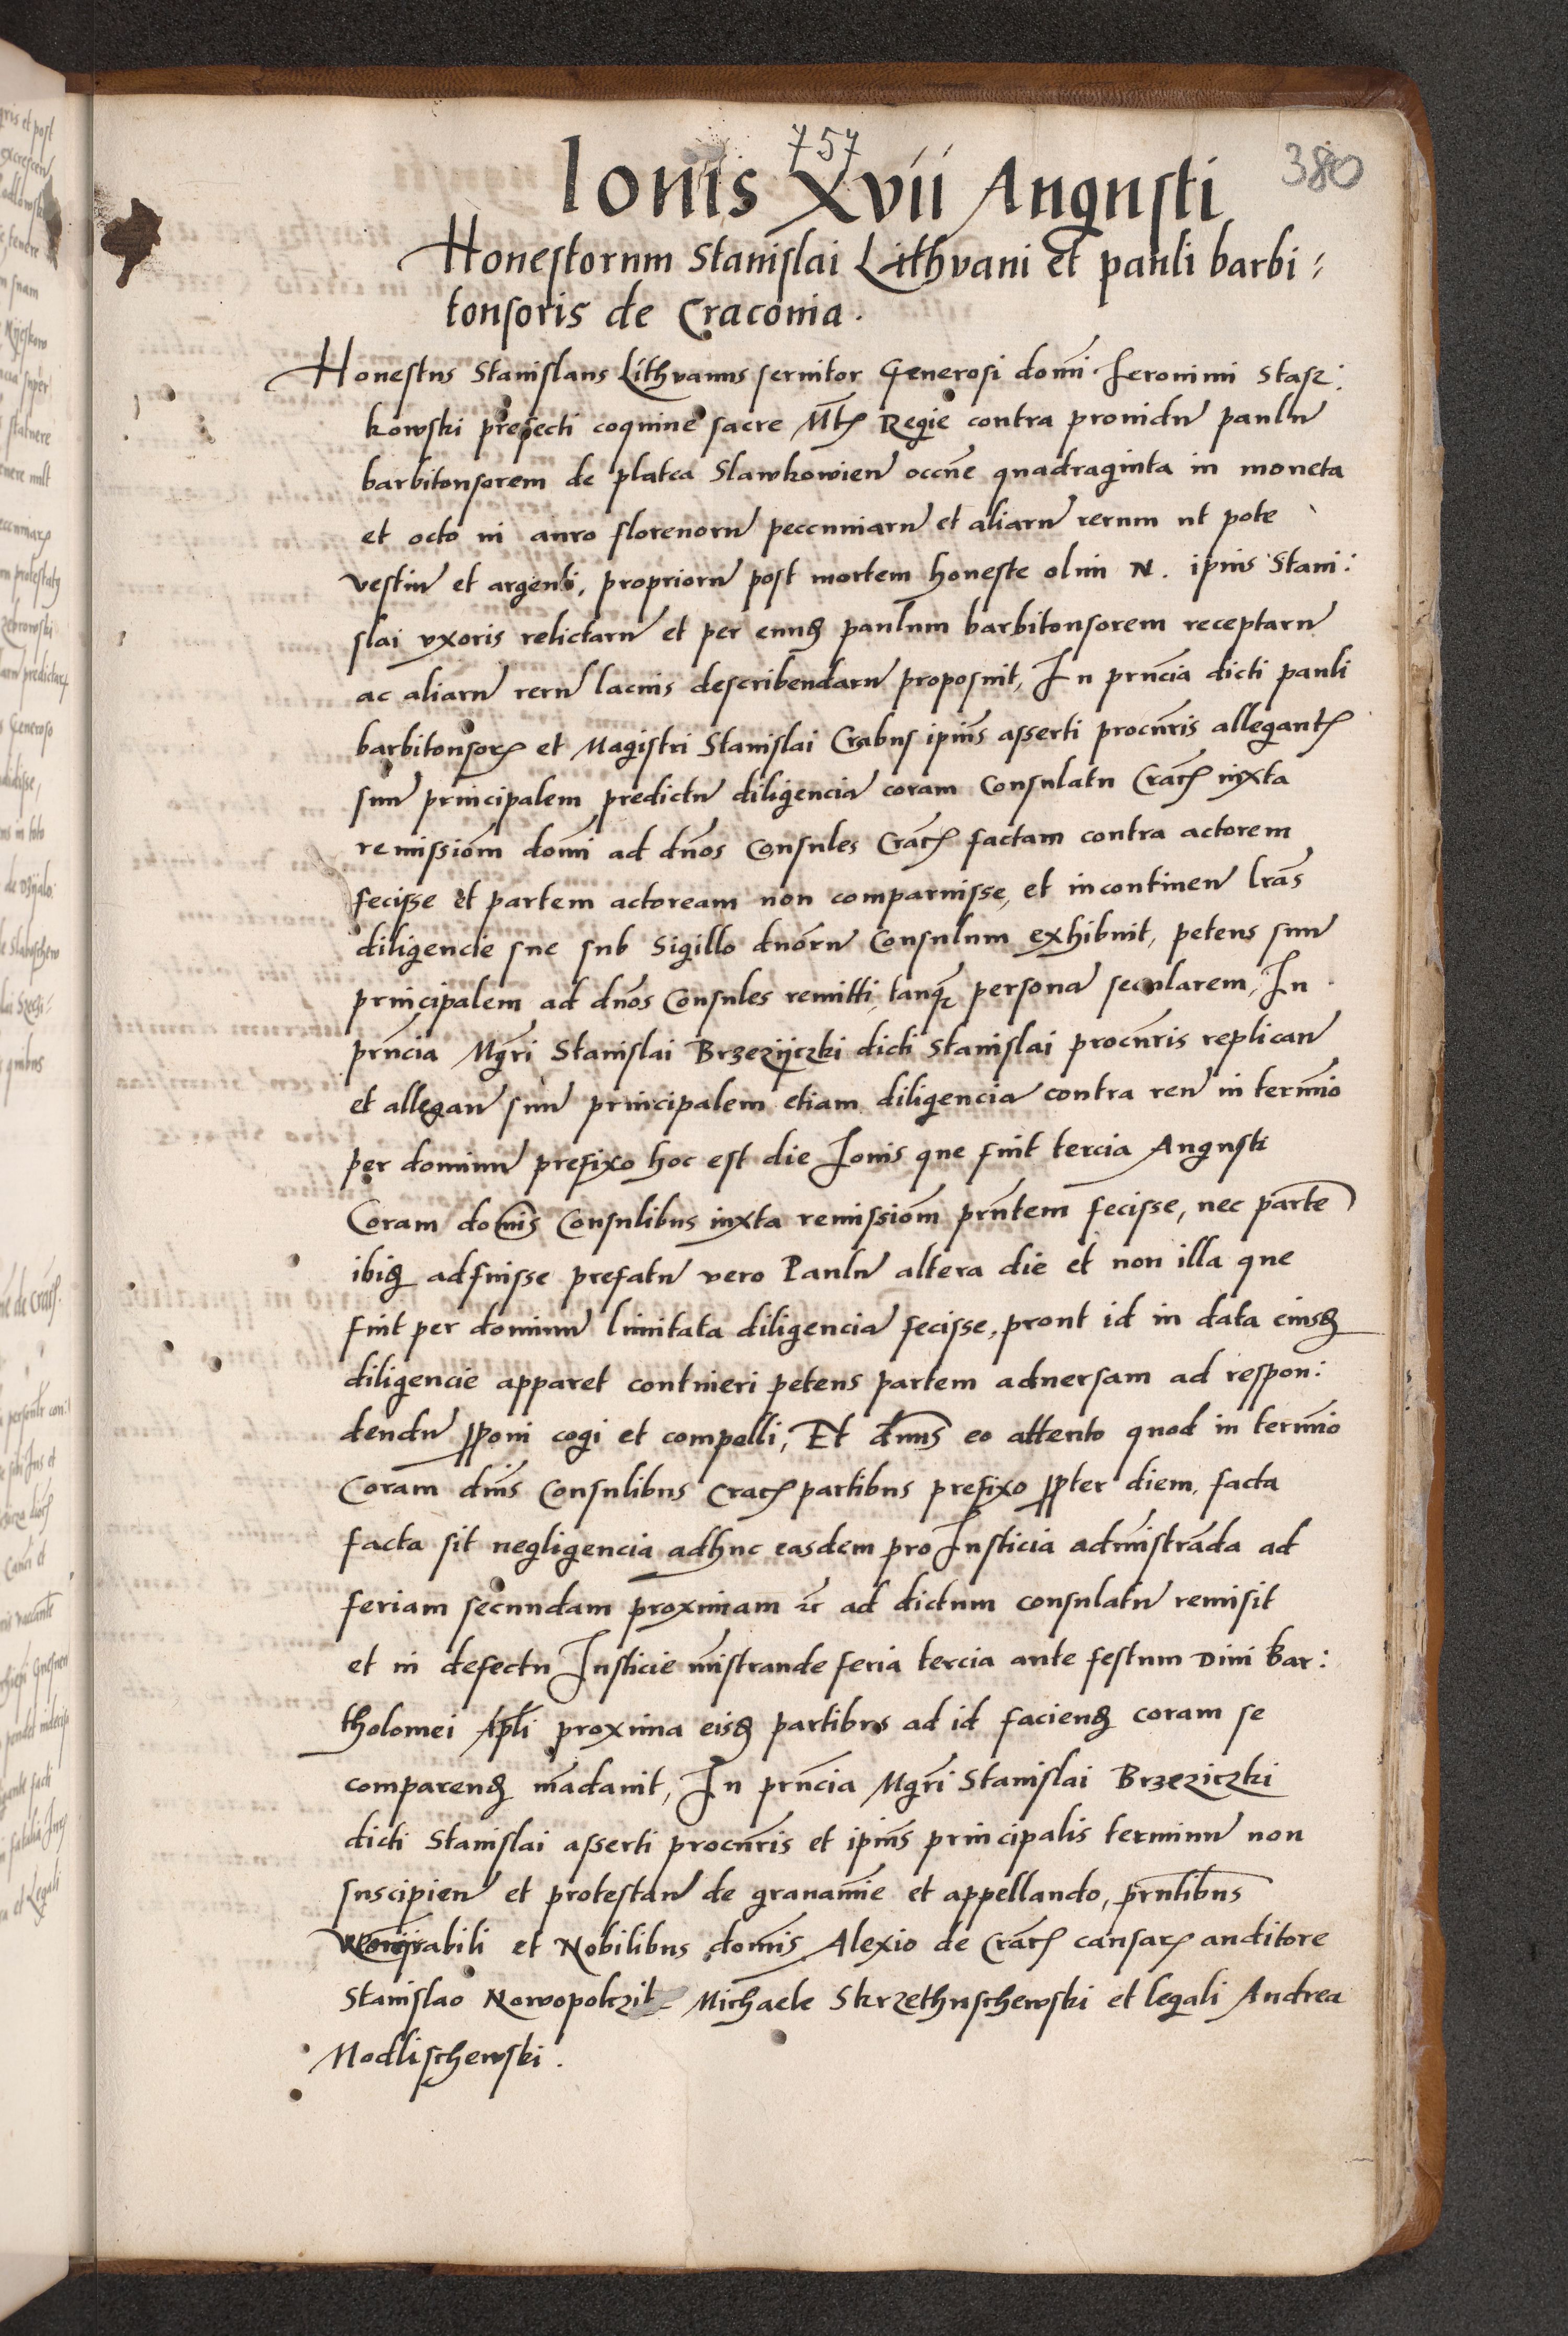 757
380
Iouis Xvii Augusti
Honestorum Stanislai Lithvani et pauli barbi:
tonsoris de Cracouia.
Honestus Stanislaus Lithvanus seruitor Generosi domi Ieronimi Stasz:
kowski prefecti coquine sacre Mtis Regie contra prouidu paulu
barbitonsorem de platea Slawkowien occne quadraginta in moneta
et octo in auro florenoru peccuniaru et aliaru rerum ut pote
vestiu et argenti, propriaru post mortem honeste olim N. ipius Stani:
slai vxoris relictaru et per eunq paulum barbitonsorem receptaru
ac aliaru reru lacius describendaru proposuit, In prncia dicti pauli
barbitonsor et Magistri Stanislai Crabus ipius asserti procuris allegant
suu principalem predictu diligencia coram Consulatu Crac iuxta
remissiom domi ad dnos Consules Crac factam contra actorem
fecisse et partem actoream non comparuisse, et incontinen lras
diligencie sue sub Sigillo dnoru Consulum exhibuit, petens suu
principalem ad dnos Consules remitti, tanq persona secularem, In
prncia Mgri Stanislai Brzezyczki dicti Stanislai procuris replican
et allegan suu principalem etiam diligencia contra reu in termio
per dominu prefixo hoc est die Iouis que fuit tercia Augusti
Coram domis Consulibus iuxta remissiom prntem fecisse, nec parte
ibiq adfuisse prefatu vero Paulu altera die et non illa que
fuit per dominu limitata diligencia fecisse, prout id in data eiusq
diligencie apparet contineri petens partem aduersam ad respon:
dendu pponi cogi et compelli, Et dnus eo attento quod in termio
Coram dnis Consulibus Crac partibus prefixo ppter diem facta
facta sit negligencia adhuc easdem pro Iusticia admistranda ad
feriam secundam proximam etc ad dictum consulatu remisit
et in defectu Iusticie mistrande feria tercia ante festum Diui Bar:
tholomei Apli proxima eisq partibus ad id faciend coram se
comparend madauit, In prncia Mgri Stanislai Brzeziczki
dicti Stanislai asserti procuris et ipius principalis terminu non
suscipien et protestan de grauamie et appellando, prntibus
Venerabili et Nobilibus domis Alexio de Crac causar auditore
Stanislao Nowopolczik Michaele Skrzethuschewski et legali Andrea
Modlischewski.